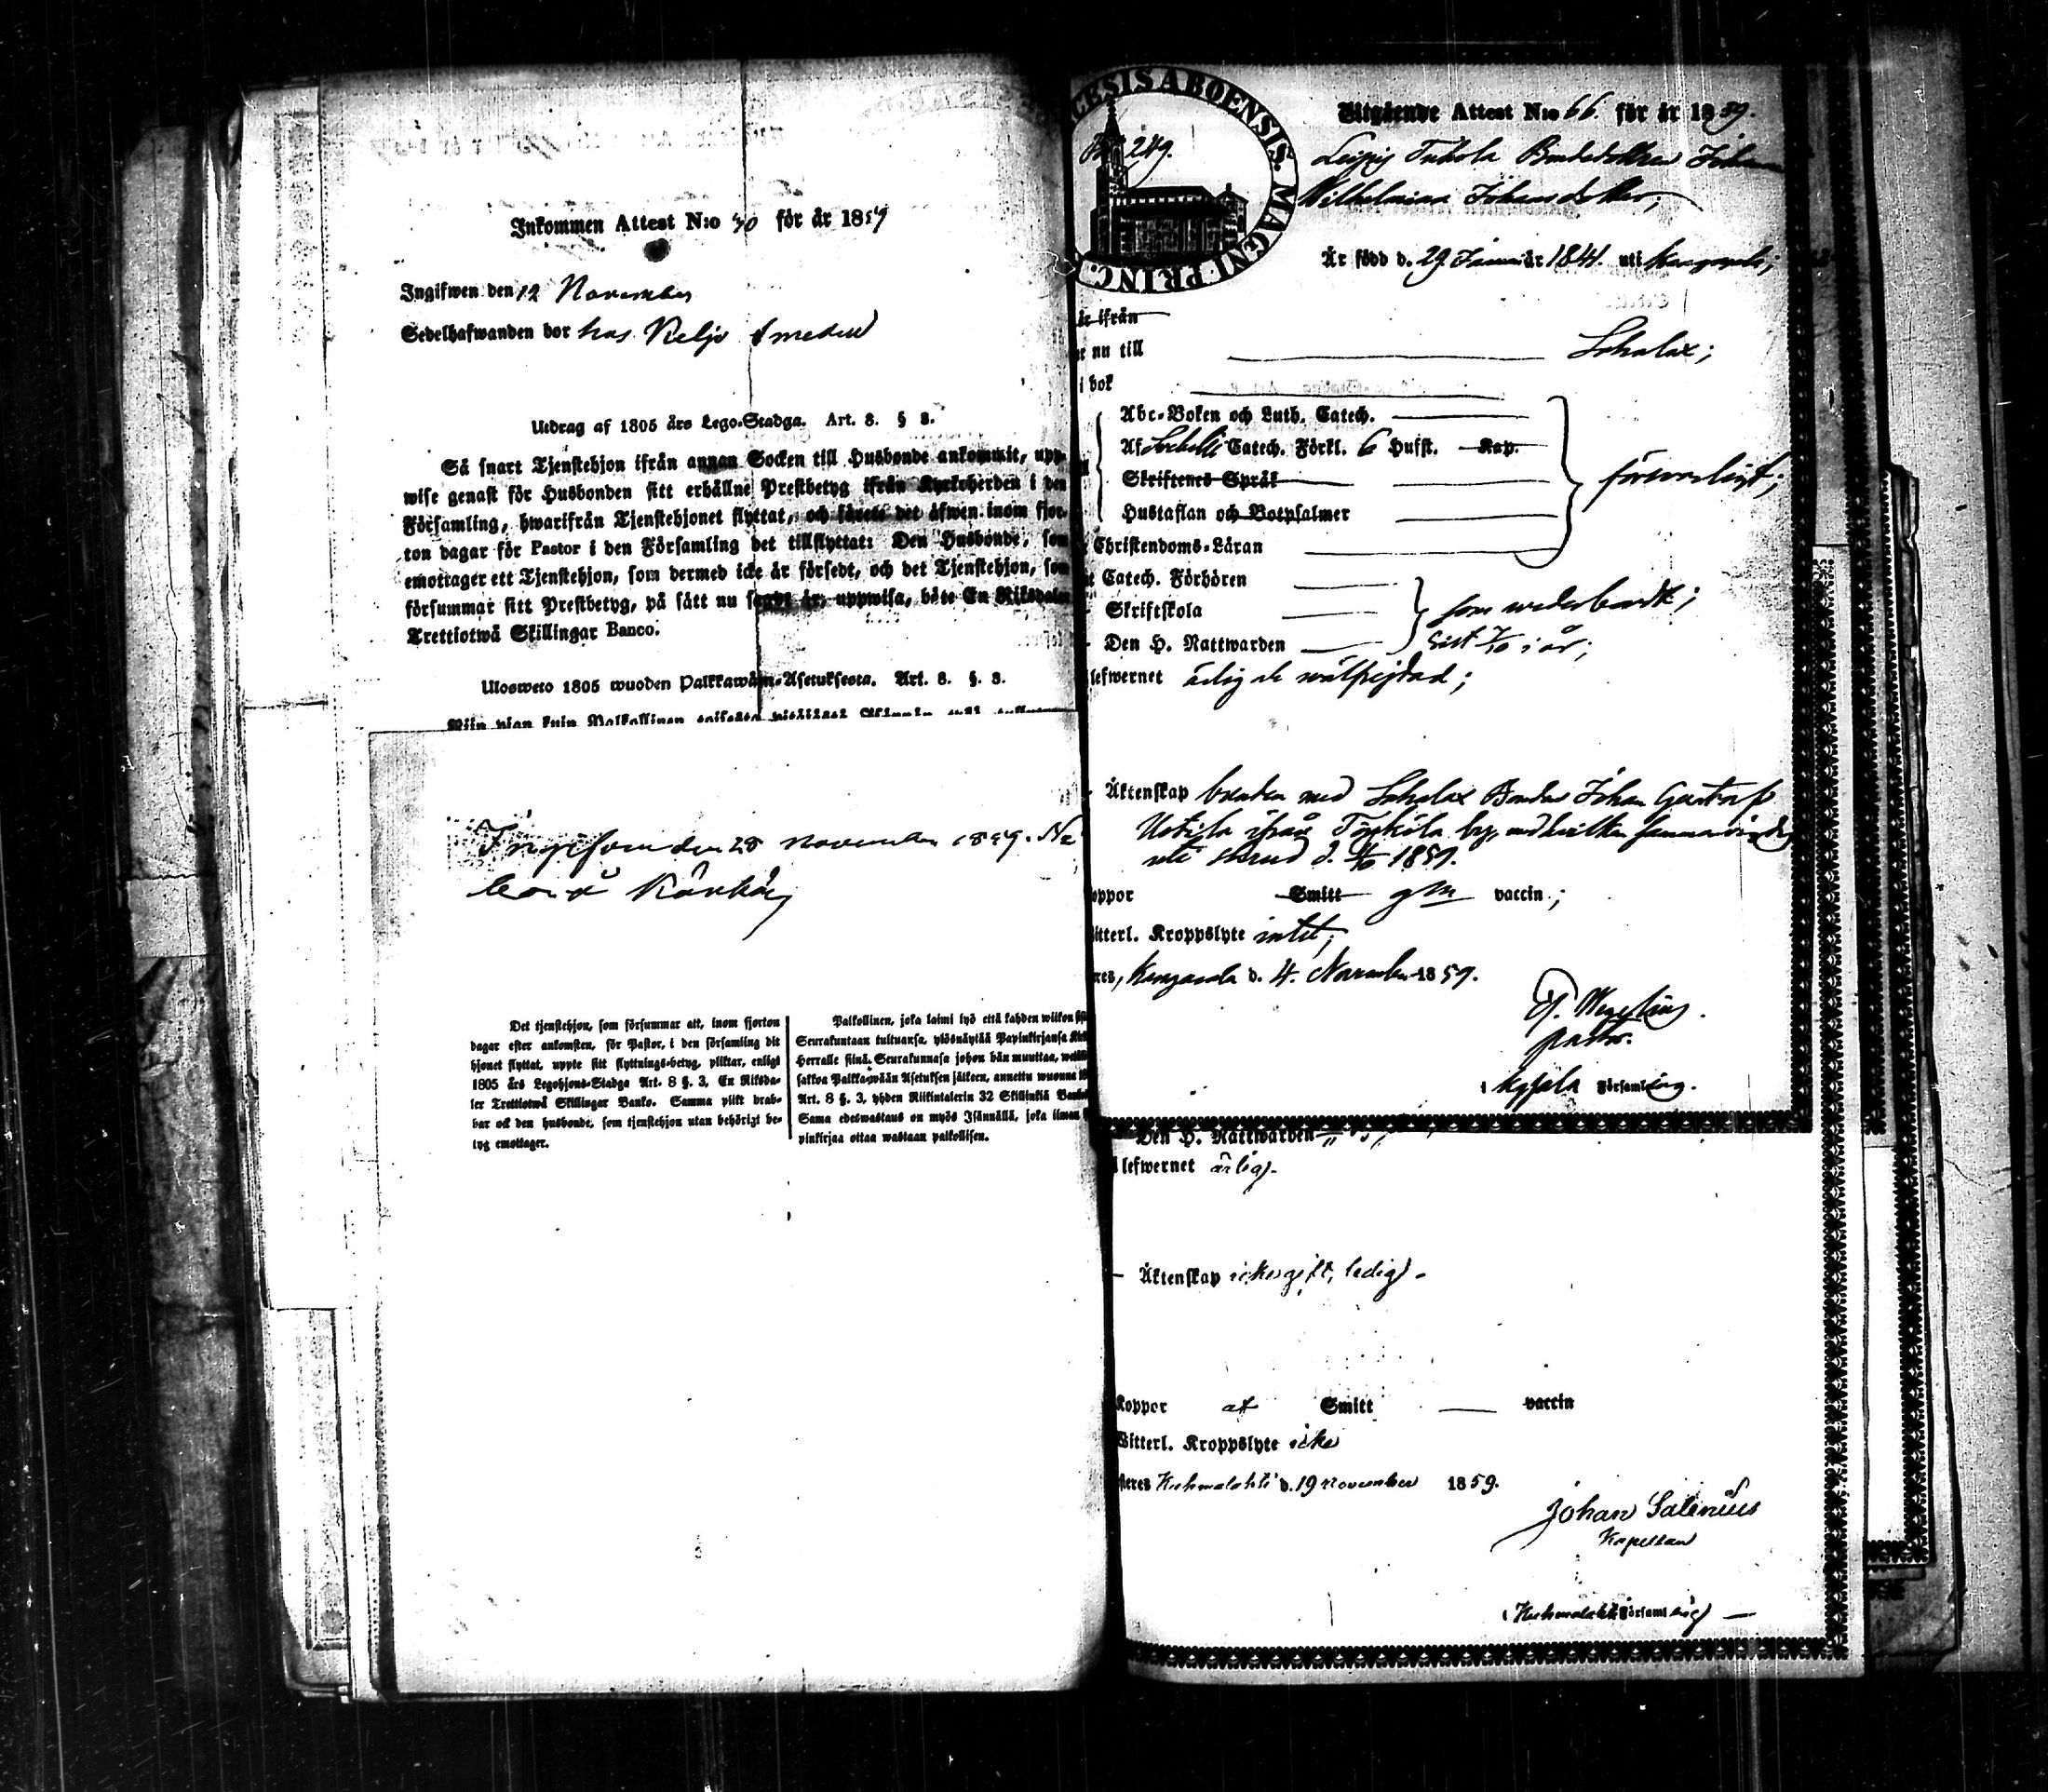 Inkommen Attest N:o 30 för år 1859
Ingifwen den 12 November
Sedelhafwanden bor hos Keljo Smeden
Utdrag af 1805 års Lego-Stadga. Art. 8. § 3.
Så snart Tjenstehjon ifrån annan Socken till Husbonde ankommit, upp-
wise genast för Husbonden sitt erhållne Prestbetyg ifrån Kyrkoherden i den
Församling, hwarifrån Tjenstehjonet flyttat, och förete det äfwen inom fjor-
ton dagar för Pastor i den Församling det tillflyttat: Den Husbonde, som
emottager ett Tjenstehjon, som dermed icke är försedt, och det Tjenstehjon, som
försummar sitt Prestbetyg, på sätt nu sagdt är, uppwisa, böte En Riksdaler
Trettiotwå Skillingar Banco.
Ulosweto 1805 wuoden Palkkawäen-Asetuksesta. Art. 8. §. 3.
Niin pian kuin Palkollinen toisesta pitäjästä
Ingifwen den 28 November 1859.
Det tjenstehjon, som försummar att, inom fjorton
dagar efter ankomsten, för Pastor, i den församling dit
hjonet flyttat, uppte sitt flyttnings-betyg, pliktar, enligt
1805 års Legohjons-Stadga Art. 8 §. 3, En Riksda-
ler Trettiotwå Skillingar Banko. Samma plikt drab-
bar ock den husbonde, som tjenstehjon utan behörigt be-
tyg emottager.
Palkollinen, joka laimi lyö että kahden wiikon
Seurakuntaan tultuansa, ylösnäytää Papinkirjansa
Herralle siinä Seurakunnasa johon hän muuttaa,
sakkoa Palkka-wään Asetuksen jälkeen, annettu wuonna
Art. 8 §. 3, yhden Riikintalerin 32 Skillinkiä
Sama edeswastaus on myös Isännällä, joka ilman
pinkirjaa ottaa wastaan palkollisen.
CESIS ABOENSIS. MAGNI PRINC.
249.
Utgående Attest N:o 66. för år 1859.
Wilhelmina Johansdotter,
Är född d. 29 Januari år 1841. uti Kangasala;
är ifrån
nu till Sahalax;
i bok
Abc-Boken och Luth. Catech.
Af Catech. Förkl. 6 Hufst. Kap.
Skriftenes Språk
Hustaflan och Botpsalmer
försvarligt;
Christendoms-Läran
Catech. Förhören
Skriftskola
Den H. Nattwarden
som wederbordt;
sist i år;
lefwernet ärlig och wälfrejdad;
Äktenskap bunden med Sahalax Bonden Johan Gustaf
Uotila ifrån
1859.
oppor Smitt gm vaccin;
itterl. Kroppslyte intet;
res, Kangasala d. 4. November 1859.
Pastor.
i Församling.
Den H. Nattwarden
lefwernet ärlig.
Äktenskap icke gift, ledig.
Koppor af Smitt vaccin
Witterl. Kroppslyte icke
teres Kuhmalahti d. 19 November 1859.
Johan Salenius
Kapellan
i Kuhmalahti Församling